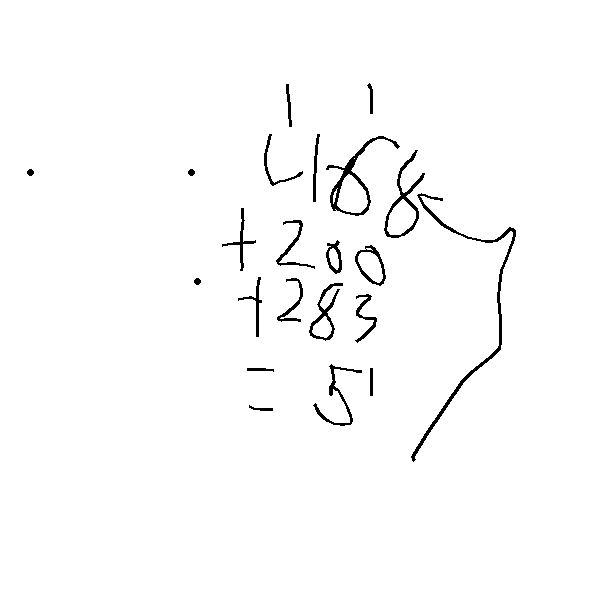 1 1
468
+200
+283
= 51